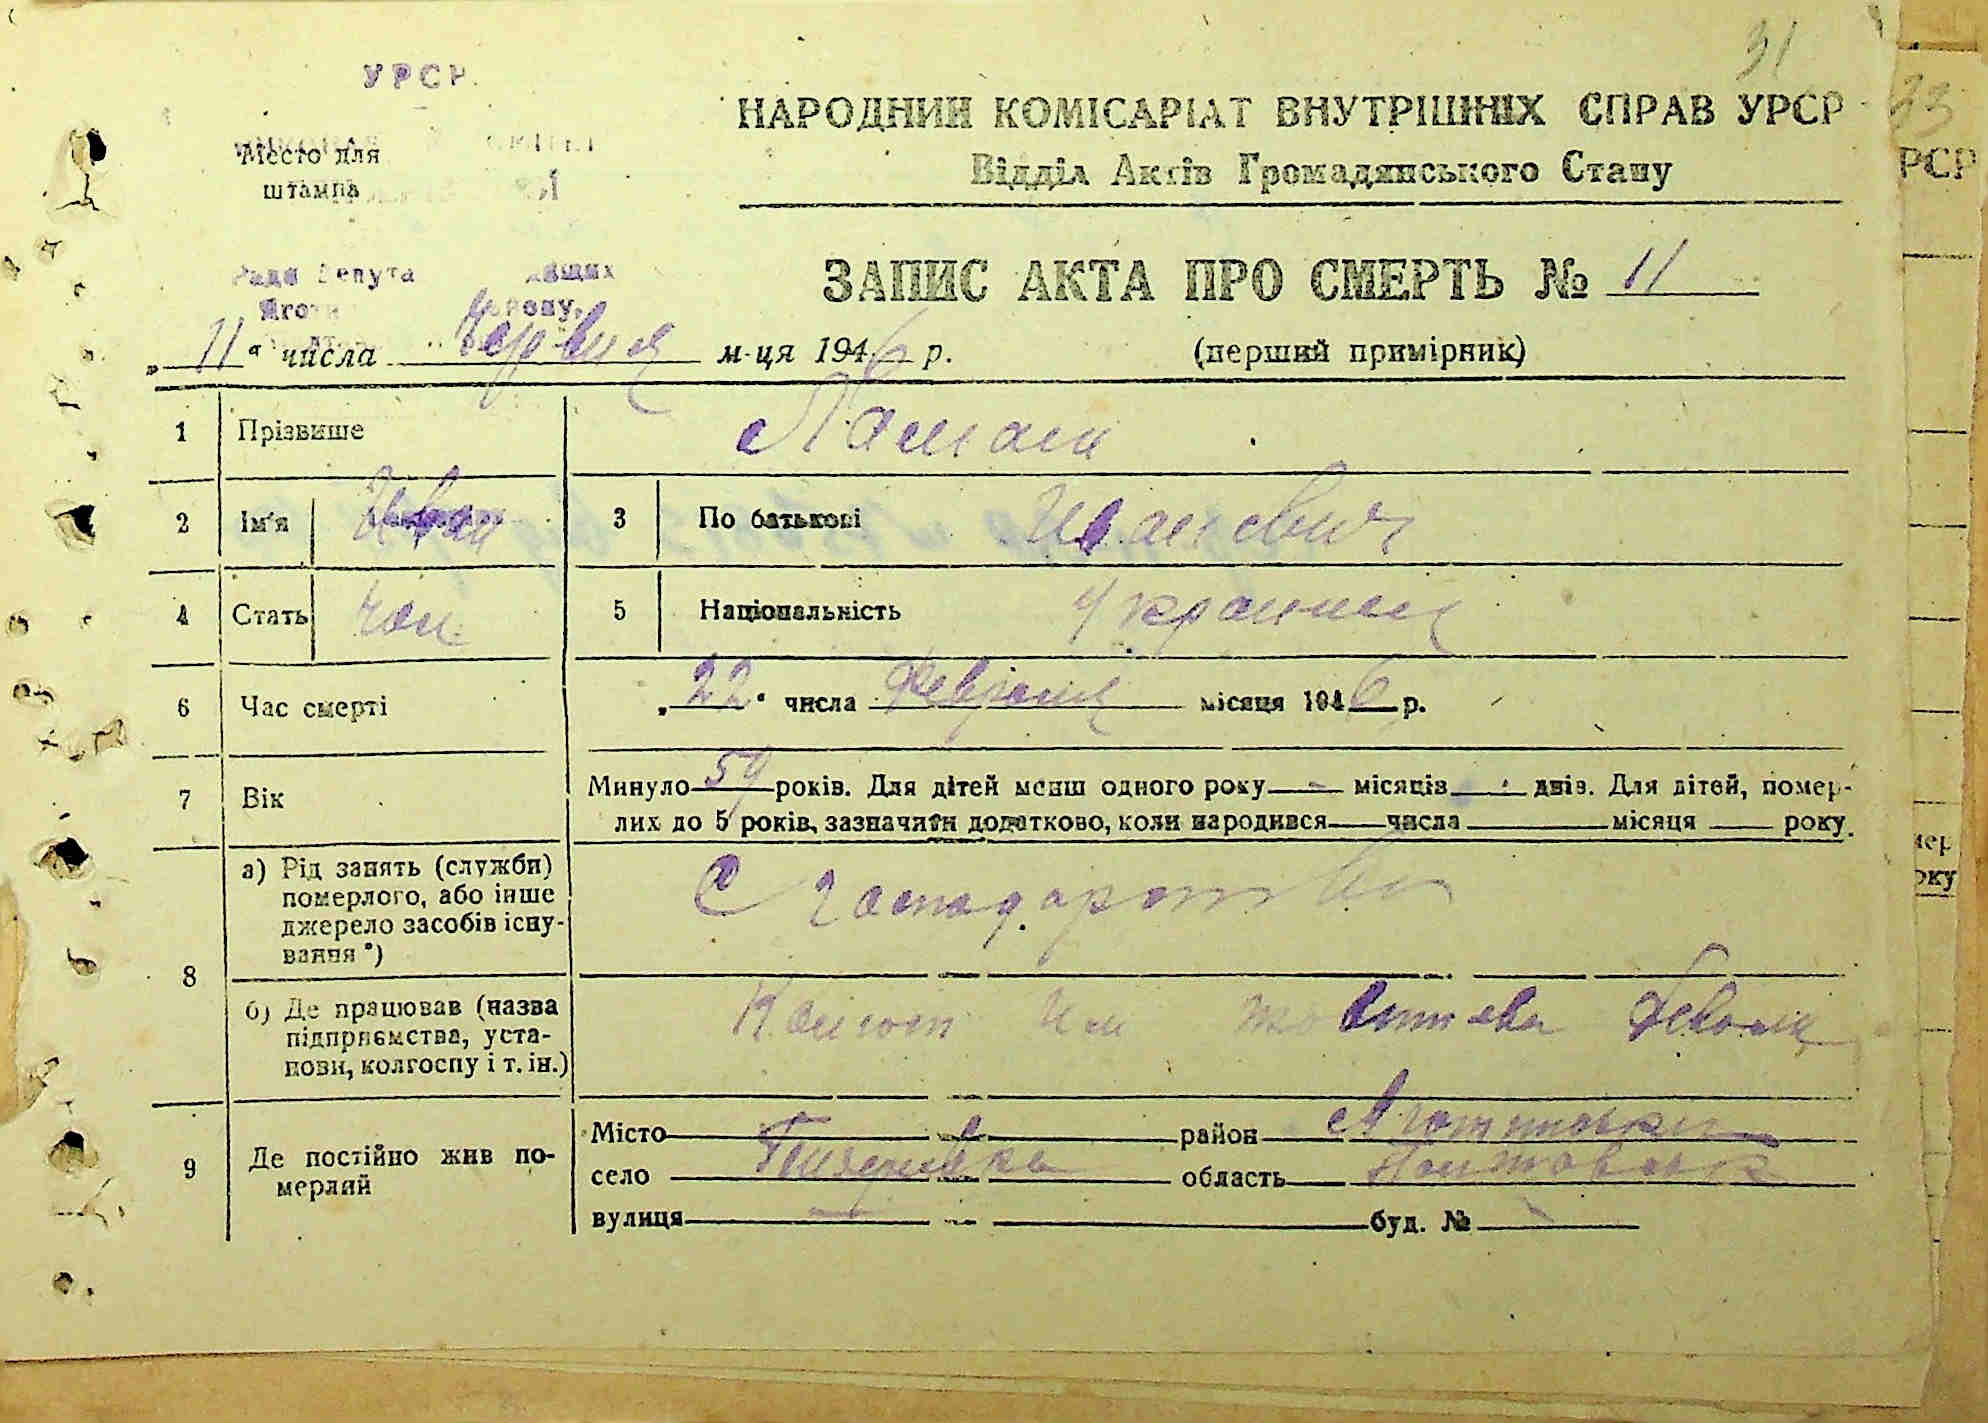 31
УРСР
Место для
штампа
НАРОДНИЙ КОМІСАРІАТ ВНУТРІШНІХ СПРАВ УРСР
Відділ Актів Громадянського Стану
33
РСР
ЗАПИС АКТА ПРО СМЕРТЬ № 11
„11“ числа Червня м-ця 1946 р. (перший примірник)
1 Прізвище
2 Ім'я Иван 3 По батькові Иванович
4 Стать чол. 5 Національність Украинец
6 Час смерті „22“ числа Февраля місяця 1946 р.
7 Вік Минуло 59 років. Для дітей менш одного року — місяців — днів. Для дітей, помер-
лих до 5 років, зазначити додатково, коли народився числа місяця року.
8 а) Рід занять (служби)
померлого, або інше
джерело засобів існу-
вання *)
С господарства
б) Де працював (назва
підприємства, уста-
нови, колгоспу і т. ін.)
Им
9 Де постійно жив по-
мерлий
Місто — район Яготинськи
село область Полтавська
вулиця — буд. №
мер
оку